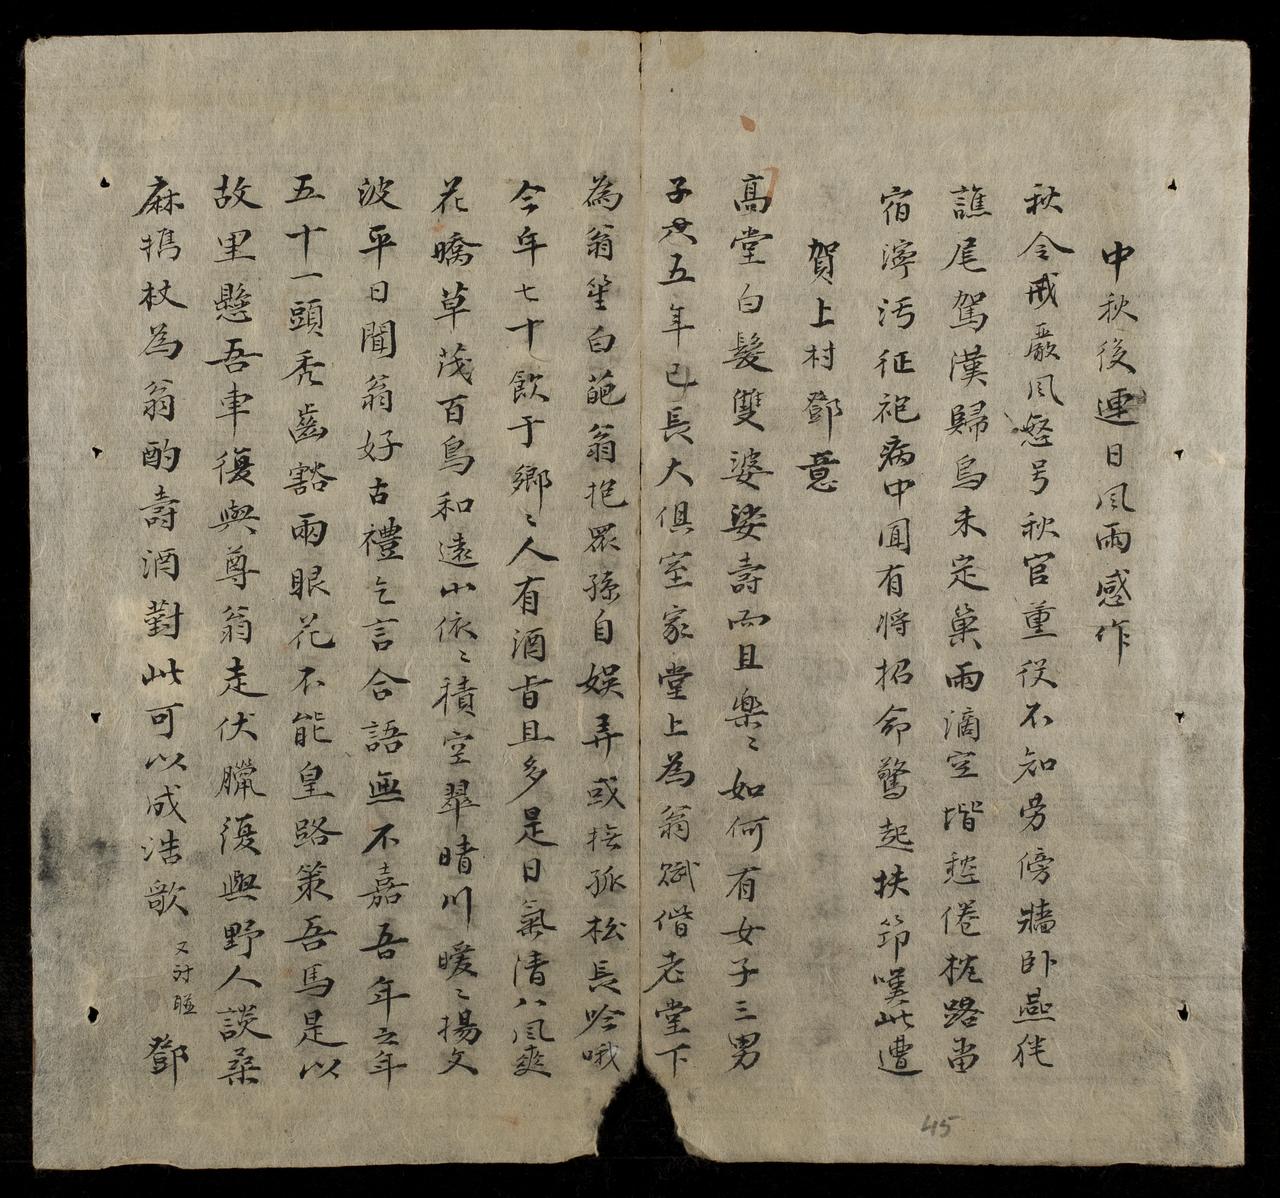 中秋後連日風雨感作
秋令戒嚴風怒号秋官董役不知勞傍牆卧燕陡
譙尾駕漢歸烏未定巢雨滴空堦愁倦枕路當
宿濘汚征袍病中囯有將招命驚起扶笻嘆此遭
賀上村鄧意
高堂白髮雙婆娑壽而且樂〻如何有女子三男
子共五年已長大俱室家堂上為翁賦偕老堂下
為翁笙白葩翁抱衆孫自娛弄或撫孤松長吟哦
今年七十飲于鄉〻人有酒旨且多是日氣清八風爽
花嬌草茂百鳥和遠山依〻積空翠晴川暖〻揚文
波平日聞翁好古禮乞言合語無不嘉吾年之年
五十一頭禿齒豁兩眼花不能皇路策吾馬是以
故里懸吾車復與尊翁走伏臘復與野人談桑
麻携杖為翁酌壽酒對此可以成浩歌
又討聯
鄧
45